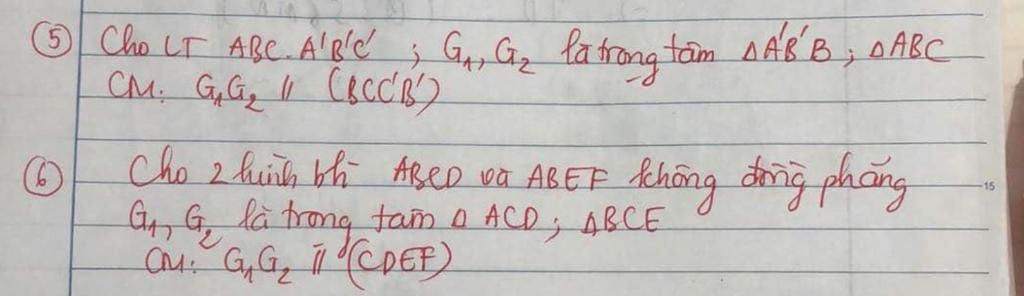 ⑤ Cho LT ABC.A'B'C' ; G₁, G₂ là trọng tâm ΔA'B'B ; ΔABC
CM: G₁G₂ // (BCC'B')
⑥ Cho 2 hình bh ABCD và ABEF không đồng phẳng
15
G₁, G₂ là trọng tâm Δ ACD ; ΔBCE
CM: G₁G₂ // (CDEF)